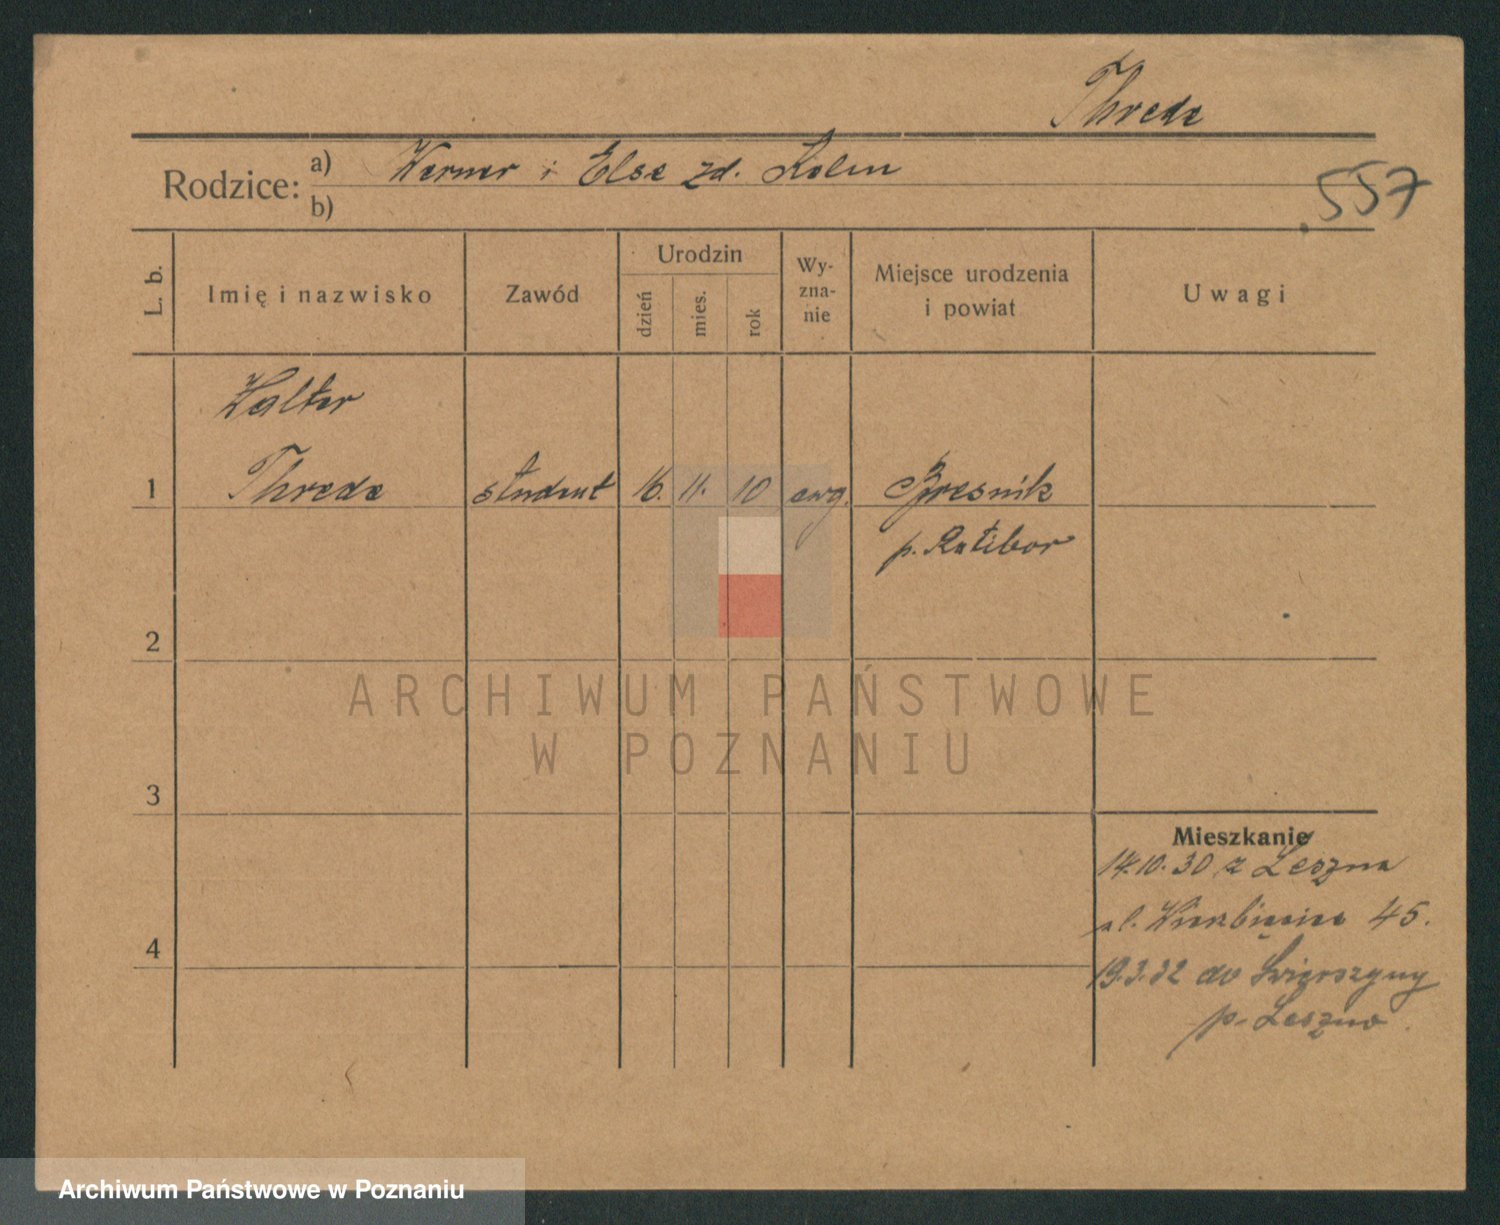 Threde
Rodzice:
a) Werner i Else zd. Kolm
b)
557
L. b.
Imię i nazwisko
Zawód
Urodzin
dzień
mies.
rok
Wy-
zna-
nie
Miejsce urodzenia
i powiat
Uwagi
Walter
1 Threde student 16. 11. 10 ewg. Bresnik
p. Ratibor
2
3
4
Mieszkanie
14.10.30 z Leszna
ul. Wierzbięcice 45.
19.3.32 do Świerszyny
p. Leszno
ARCHIWUM PAŃSTWOWE
W POZNANIU
Archiwum Państwowe w Poznaniu